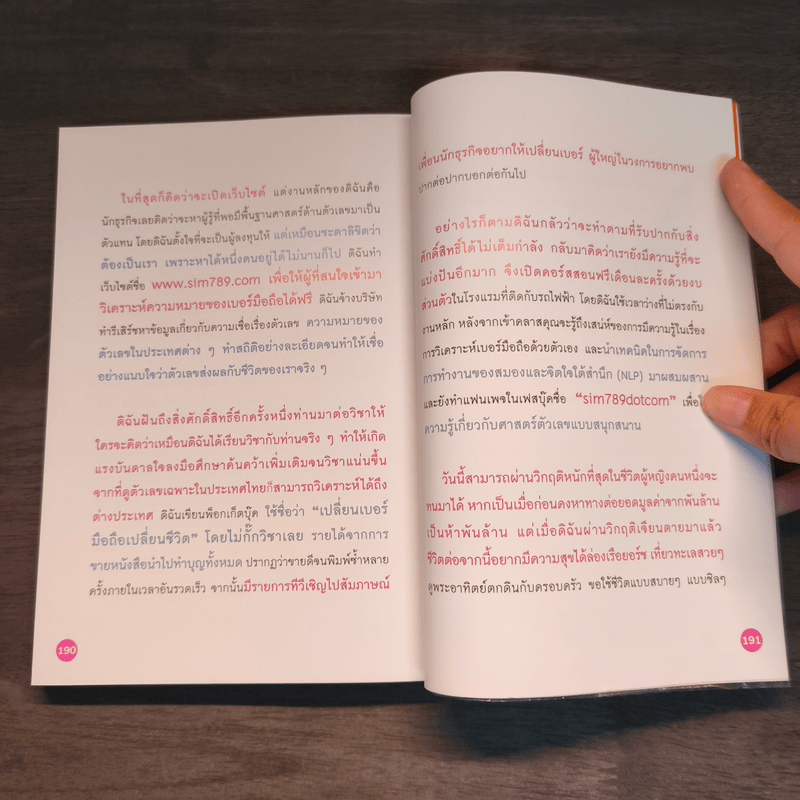 ในที่สุดก็คิดว่าจะเปิดเว็บไซต์ แต่งานหลักของดิฉันคือ
นักธุรกิจเลยคิดว่าจะหาผู้รู้ที่พอมีพื้นฐานศาสตร์ด้านตัวเลขมาเป็น
ตัวแทน โดยดิฉันตั้งใจที่จะเป็นผู้ลงทุนให้ แต่เหมือนชะตาลิขิตว่า
ต้องเป็นเรา เพราะหาได้หนึ่งคนอยู่ได้ไม่นานก็ไป ดิฉันทำ
เว็บไซต์ชื่อ www.sim789.com เพื่อให้ผู้ที่สนใจเข้ามา
วิเคราะห์ความหมายของเบอร์มือถือได้ฟรี ดิฉันจ้างบริษัท
ทำรีเสิร์ชหาข้อมูลเกี่ยวกับความเชื่อเรื่องตัวเลข ความหมายของ
ตัวเลขในประเทศต่าง ๆ ทำสถิติอย่างละเอียดจนทำให้เชื่อ
อย่างแนบใจว่าตัวเลขส่งผลกับชีวิตของเราจริง ๆ
ดิฉันฝันถึงสิ่งศักดิ์สิทธิ์อีกครั้งหนึ่งท่านมาต่อวิชาให้
ใครจะคิดว่าเหมือนดิฉันได้เรียนวิชากับท่านจริง ๆ ทำให้เกิด
แรงบันดาลใจลงมือศึกษาค้นคว้าเพิ่มเติมจนวิชาแน่นขึ้น
จากที่ดูตัวเลขเฉพาะในประเทศไทยก็สามารถวิเคราะห์ได้ถึง
ต่างประเทศ ดิฉันเขียนพ็อกเก็ตบุ๊ค ใช้ชื่อว่า “เปลี่ยนเบอร์
มือถือเปลี่ยนชีวิต” โดยไม่กั๊กวิชาเลย รายได้จากการ
ขายหนังสือนำไปทำบุญทั้งหมด ปรากฏว่าขายดีจนพิมพ์ซ้ำหลาย
ครั้งภายในเวลาอันรวดเร็ว จากนั้นมีรายการทีวีเชิญไปสัมภาษณ์
190
เพื่อนนักธุรกิจอยากให้เปลี่ยนเบอร์ ผู้ใหญ่ในวงการอยากพบ
ปากต่อปากบอกต่อกันไป
อย่างไรก็ตามดิฉันกลัวว่าจะทำตามที่รับปากกับสิ่ง
ศักดิ์สิทธิ์ได้ไม่เต็มกำลัง กลับมาคิดว่าเรายังมีความรู้ที่จะ
แบ่งปันอีกมาก จึงเปิดคอร์สสอนฟรีเดือนละครั้งด้วยงบ
ส่วนตัวในโรงแรมที่ติดกับรถไฟฟ้า โดยดิฉันใช้เวลาว่างที่ไม่ตรงกับ
งานหลัก หลังจากเข้าคลาสคุณจะรู้ถึงเสน่ห์ของการมีความรู้ในเรื่อง
การวิเคราะห์เบอร์มือถือด้วยตัวเอง และนำเทคนิคในการจัดการ
การทำงานของสมองและจิตใจใต้สำนึก (NLP) มาผสมผสาน
และยังทำแฟนเพจในเฟสบุ๊คชื่อ “sim789dotcom”
ความรู้เกี่ยวกับศาสตร์ตัวเลขแบบสนุกสนาน
วันนี้สามารถผ่านวิกฤติหนักที่สุดในชีวิตผู้หญิงคนหนึ่งจะ
ทนมาได้ หากเป็นเมื่อก่อนคงหาทางต่อยอดมูลค่าจากพันล้าน
เป็นห้าพันล้าน แต่เมื่อดิฉันผ่านวิกฤติเจียนตายมาแล้ว
ชีวิตต่อจากนี้อยากมีความสุขได้ล่องเรือยอร์ช เที่ยวทะเลสวยๆ
ดูพระอาทิตย์ตกดินกับครอบครัว ขอใช้ชีวิตแบบสบายๆ แบบชิลๆ
191